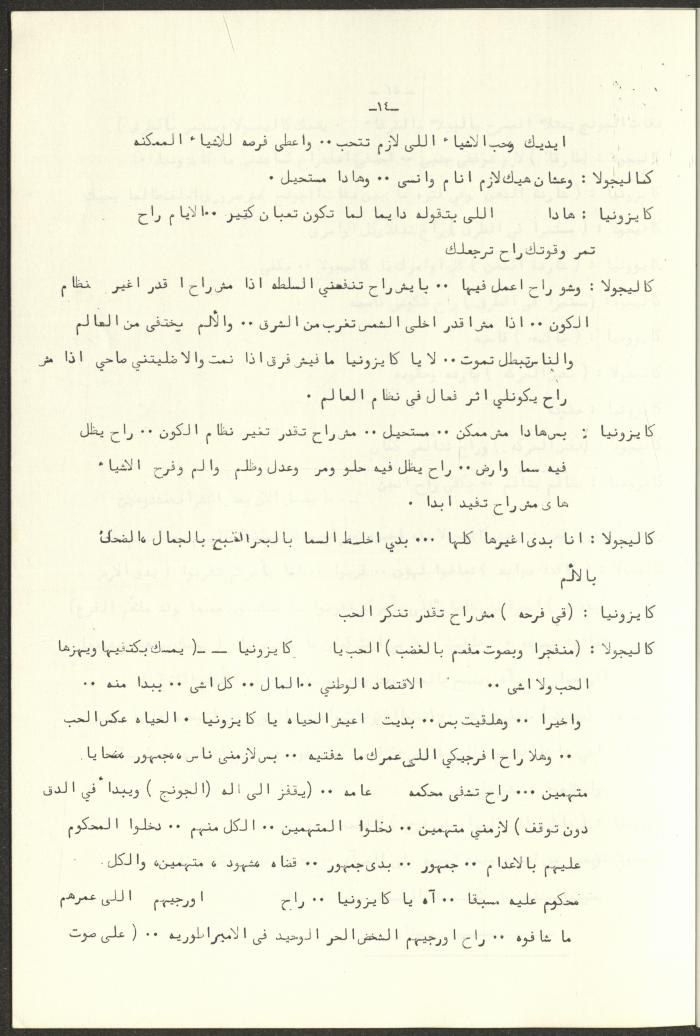 -١٤-
ايديك وحب الاشياء اللى لازم تتحب ٠٠ واعطى فرصه للاشياء الممكنه
كاليجولا : وعشان هيك لازم انام وانسى ٠٠ وهادا مستحيل ٠
كايزونيا : هادا اللى بتقوله دايما لما تكون تعبان كتير ٠٠ الايام راح
تمر وقوتك راح ترجعلك
كاليجولا : وشو راح اعمل فيها ٠٠ بايش راح تنفعني السلطه اذا مش راح اقدر اغير نظام
الكون ٠٠ اذا مش اقدر اخلى الشمس تغرب من الشرق ٠٠ والألم يختفى من العالم
والناس تبطل تموت ٠٠ لا يا كايزونيا ما فيش فرق اذا نمت والا ضليتني صاحي اذا مش
راح يكونلي اثر فعال فى نظام العالم ٠
كايزونيا : بس هادا مش ممكن ٠٠ مستحيل ٠٠ مش راح تقدر تغير نظام الكون ٠٠ راح يظل
فيه سما وارض ٠٠ راح يظل فيه حلو ومر وعدل وظلم والم وفرح الاشياء
هاى مش راح تفيد ابدا ٠
كاليجولا : انا بدى اغيرها كلها ٠٠٠ بدي اخلط السما بالبحر القبيح بالجمال ، الضحك
بالألم
كايزونيا : (قى فرحه ) مش راح تقدر تنكر الحب
كاليجولا : (منفجرا وبصوت مفعم بالغضب ) الحب يا كايزونيا ــ ـ( يمسك بكتفيها ويهزها
الحب ولا اشى ٠٠ الاقتصاد الوطني ٠٠ المال ٠٠ كل اشى ٠٠ يبدا منه ٠٠
واخيرا ٠٠ وهلقيت بس ٠٠ بديت اعيش الحياه يا كايزونيا ٠ الحياه عكس الحب
٠٠ وهلا راح افرجيكي اللى عمرك ما شفتيه ٠٠ بس لازمنى ناس ، جمهور ، ضحايا
متهمين ٠٠٠ راح تشفى محكمه عامه ٠٠ (يقفز الى اله (الجونج ) ويبدأ في الدق
دون توقف ) لازمني متهمين ٠٠ دخلوا المتهمين ٠٠ الكل منهم ٠٠ دخلوا المحكوم
عليهم بالاعدام ٠٠ جمهور ٠٠ بدى جمهور ٠٠ قضاه ، شهود ، متهمين ، والكل
محكوم عليه مسبقا ٠٠ آه يا كايزونيا ٠٠ راح اورجيهم اللى عمرهم
ما شافوه ٠٠ راح اورجيهم الشخص الحر الوحيد فى الامبراطوريه ٠٠ ( على صوت